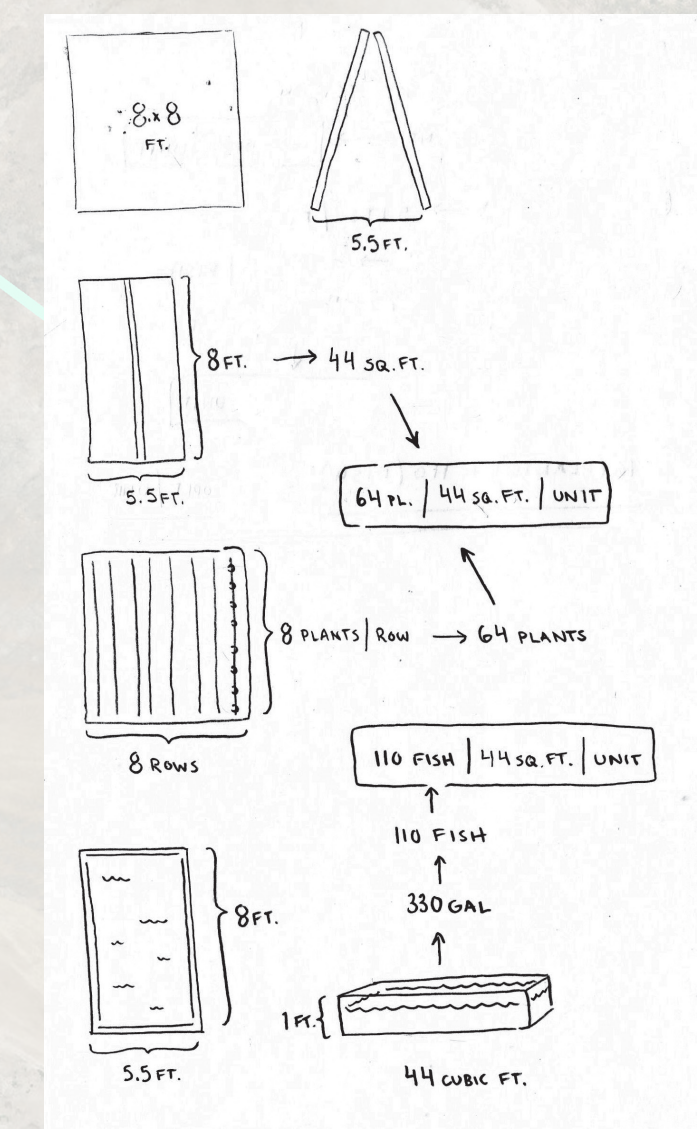 8 x 8
FT.
5.5 FT.
8 FT. → 44 SQ. FT.
5.5 FT.
64 PL. | 44 SQ. FT. | UNIT
8 PLANTS | ROW → 64 PLANTS
8 ROWS
110 FISH | 44 SQ. FT. | UNIT
110 FISH
330 GAL
8 FT.
1 FT.
5.5 FT.
44 CUBIC FT.